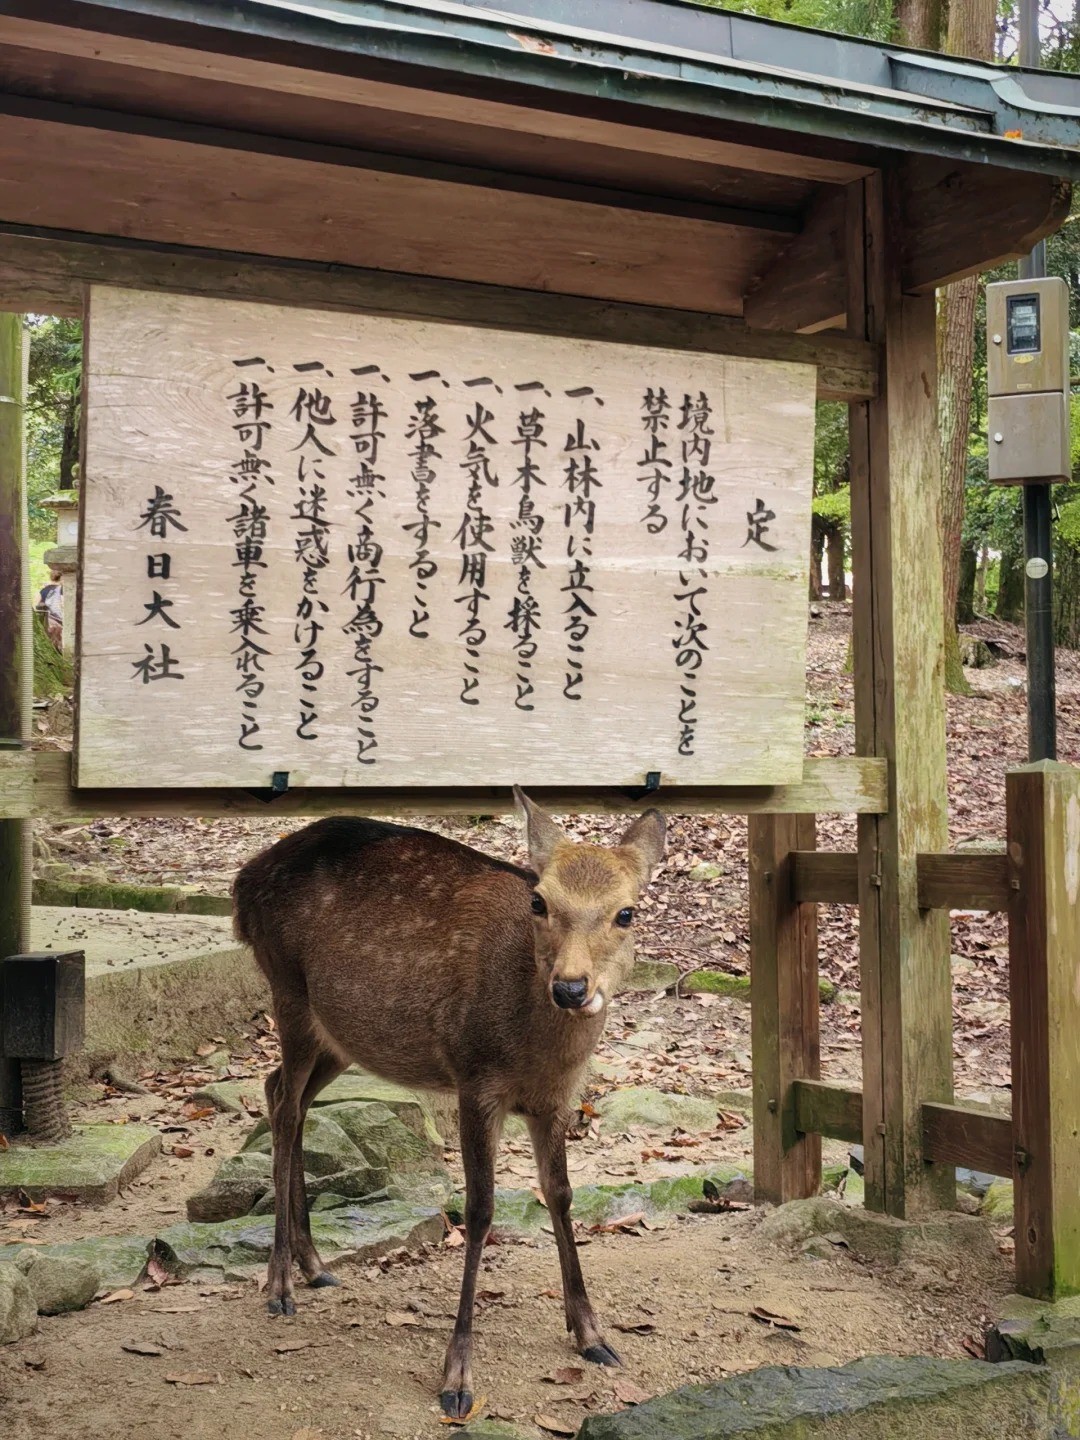 定
境内地において次のことを
禁止する
一、山林内に立入ること
一、草木鳥獣を採ること
一、火気を使用すること
一、落書をすること
一、許可無く商行為をすること
一、他人に迷惑をかけること
一、許可無く諸車を乗入れること
春日大社